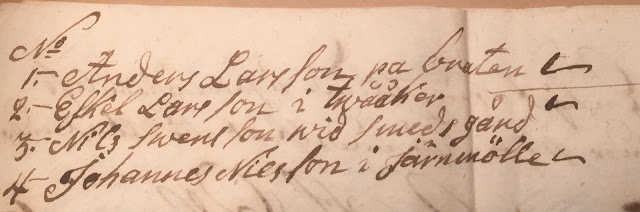 No
1.- Anders Larsson pa braten
2.- Eskel Larsson i twååker
3.- Nils Swensson wid smedsgård
4- Johannes Nilsson i Järnmölle